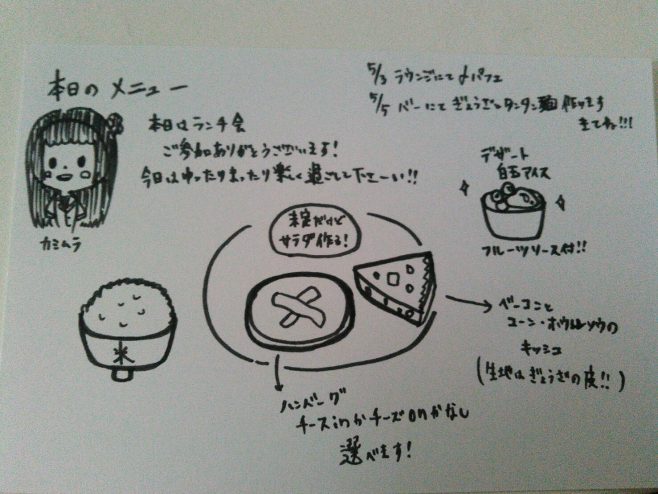 本日のメニュー
カミムラ
本日はランチ会
ご参加ありがとうございます!
今日はゆったりまったり楽しく過ごして下さーい!!
5/3 ラウンジにて
パフェ
5/5 バーにてぎょうざとタンタン麺作ります
きてね!!!
デザート
白玉アイス
フルーツソース付!!
未定だけど
サラダ作る!
米
ベーコンと
コーン・ホウレンソウの
キッシュ
(生地はぎょうざの皮!!)
ハンバーグ
チーズinかチーズonかなし
選べます!